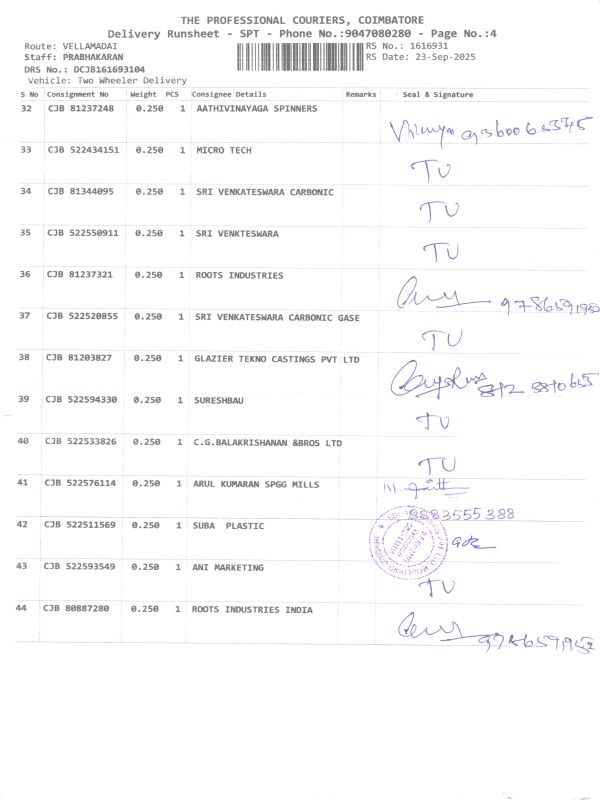 THE PROFESSIONAL COURIERS, COIMBATORE
Delivery Runsheet - SPT - Phone No.:9047080280 - Page No.:4
Route: VELLAMADAI RS No.: 1616931
Staff: PRABHAKARAN RS Date: 23-Sep-2025
DRS No.: DCJB161693104
Vehicle: Two Wheeler Delivery
S No Consignment No Weight PCS Consignee Details Remarks Seal & Signature
32 CJB 81237248 0.250 1 AATHIVINAYAGA SPINNERS
33 CJB 522434151 0.250 1 MICRO TECH TU
34 CJB 81344095 0.250 1 SRI VENKATESWARA CARBONIC TU
35 CJB 522550911 0.250 1 SRI VENKTESWARA TU
36 CJB 81237321 0.250 1 ROOTS INDUSTRIES
37 CJB 522520855 0.250 1 SRI VENKATESWARA CARBONIC GASE TU
38 CJB 81203827 0.250 1 GLAZIER TEKNO CASTINGS PVT LTD
39 CJB 522594330 0.250 1 SURESHBAU TU
40 CJB 522533826 0.250 1 C.G.BALAKRISHANAN &BROS LTD TU
41 CJB 522576114 0.250 1 ARUL KUMARAN SPGG MILLS
9883555388
42 CJB 522511569 0.250 1 SUBA PLASTIC
43 CJB 522593549 0.250 1 ANI MARKETING TU
44 CJB 80887280 0.250 1 ROOTS INDUSTRIES INDIA